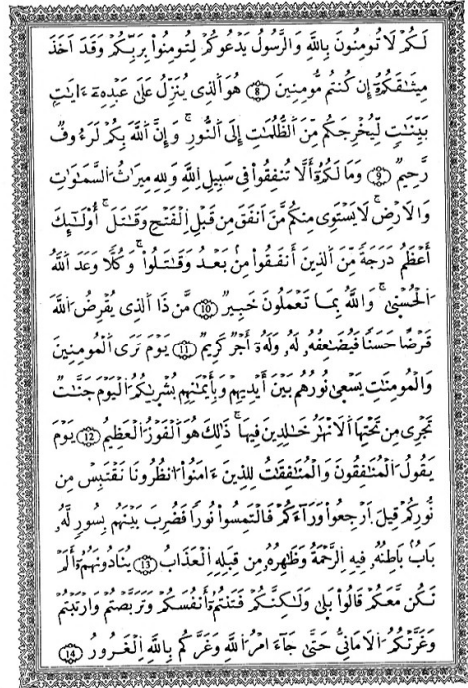 لَكُمْ لَا تُومِنُونَ بِاللَّهِ وَالرَّسُولُ يَدْعُوكُمْ لِتُومِنُواْ بِرَبِّكُمْ وَقَدَ اَخَذَ
مِيثَٰقَكُمُۥٓ إِن كُنتُم مُّومِنِينَ ۝8 هُوَ اَلذِي يُنَزِّلُ عَلَىٰ عَبْدِهِۦٓ ءَايَٰتِۢ
بَيِّنَٰتٖ لِّيُخْرِجَكُم مِّنَ اَلظُّلُمَٰتِ إِلَى اَلنُّورِۖ وَإِنَّ اَللَّهَ بِكُمْ لَرَءُوفٞ
رَّحِيمٞ ۝9 وَمَا لَكُمُۥٓ أَلَّا تُنفِقُواْ فِي سَبِيلِ اِللَّهِ وَلِلهِ مِيرَٰثُ اُلسَّمَٰوَٰتِ
وَالَارْضِۖ لَا يَسْتَوِي مِنكُم مَّنَ اَنفَقَ مِن قَبْلِ اِلْفَتْحِ وَقَٰتَلَۖ أُوْلَٰٓئِكَ
أَعْظَمُ دَرَجَةٗ مِّنَ اَلذِينَ أَنفَقُواْ مِنۢ بَعْدُ وَقَٰتَلُواْۖ وَكُلّٗا وَعَدَ اَللَّهُ
اُلْحُسْنَىٰۖ وَاللَّهُ بِمَا تَعْمَلُونَ خَبِيرٞ ۝10 مَّن ذَا اَلذِي يُقْرِضُ اُللَّهَ
قَرْضًا حَسَنٗا فَيُضَٰعِفُهُۥ لَهُۥ وَلَهُۥٓ أَجْرٞ كَرِيمٞ ۝11 يَوْمَ تَرَى اَلْمُومِنِينَ
وَالْمُومِنَٰتِ يَسْعَىٰ نُورُهُم بَيْنَ أَيْدِيهِمْ وَبِأَيْمَٰنِهِم بُشْرَىٰكُمُ اُلْيَوْمَ جَنَّٰتٞ
تَجْرِي مِن تَحْتِهَا اَلَانْهَٰرُ خَٰلِدِينَ فِيهَاۖ ذَٰلِكَ هُوَ اَلْفَوْزُ اُلْعَظِيمُ ۝12 يَوْمَ
يَقُولُ اُلْمُنَٰفِقُونَ وَالْمُنَٰفِقَٰتُ لِلذِينَ ءَامَنُواْ اُنظُرُونَا نَقْتَبِسْ مِن
نُّورِكُمْ قِيلَ اَرْجِعُواْ وَرَآءَكُمْ فَالْتَمِسُواْ نُورٗا فَضُرِبَ بَيْنَهُم بِسُورٖ لَّهُۥ
بَابُۢ بَاطِنُهُۥ فِيهِ اِلرَّحْمَةُ وَظَٰهِرُهُۥ مِن قِبَلِهِ اِلْعَذَابُ ۝13 يُنَادُونَهُمُۥٓ أَلَمْ
نَكُن مَّعَكُمْ قَالُواْ بَلَىٰ وَلَٰكِنَّكُمْ فَتَنتُمُۥٓ أَنفُسَكُمْ وَتَرَبَّصْتُمْ وَارْتَبْتُمْ
وَغَرَّتْكُمُ اُلَامَانِيُّ حَتَّىٰ جَآءَ امْرُ اُللَّهِ وَغَرَّكُم بِاللَّهِ اِلْغَرُورُ ۝14